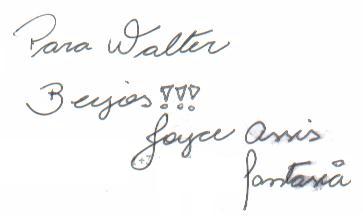 Para Walter
Beijos!!!
Joyce Assis